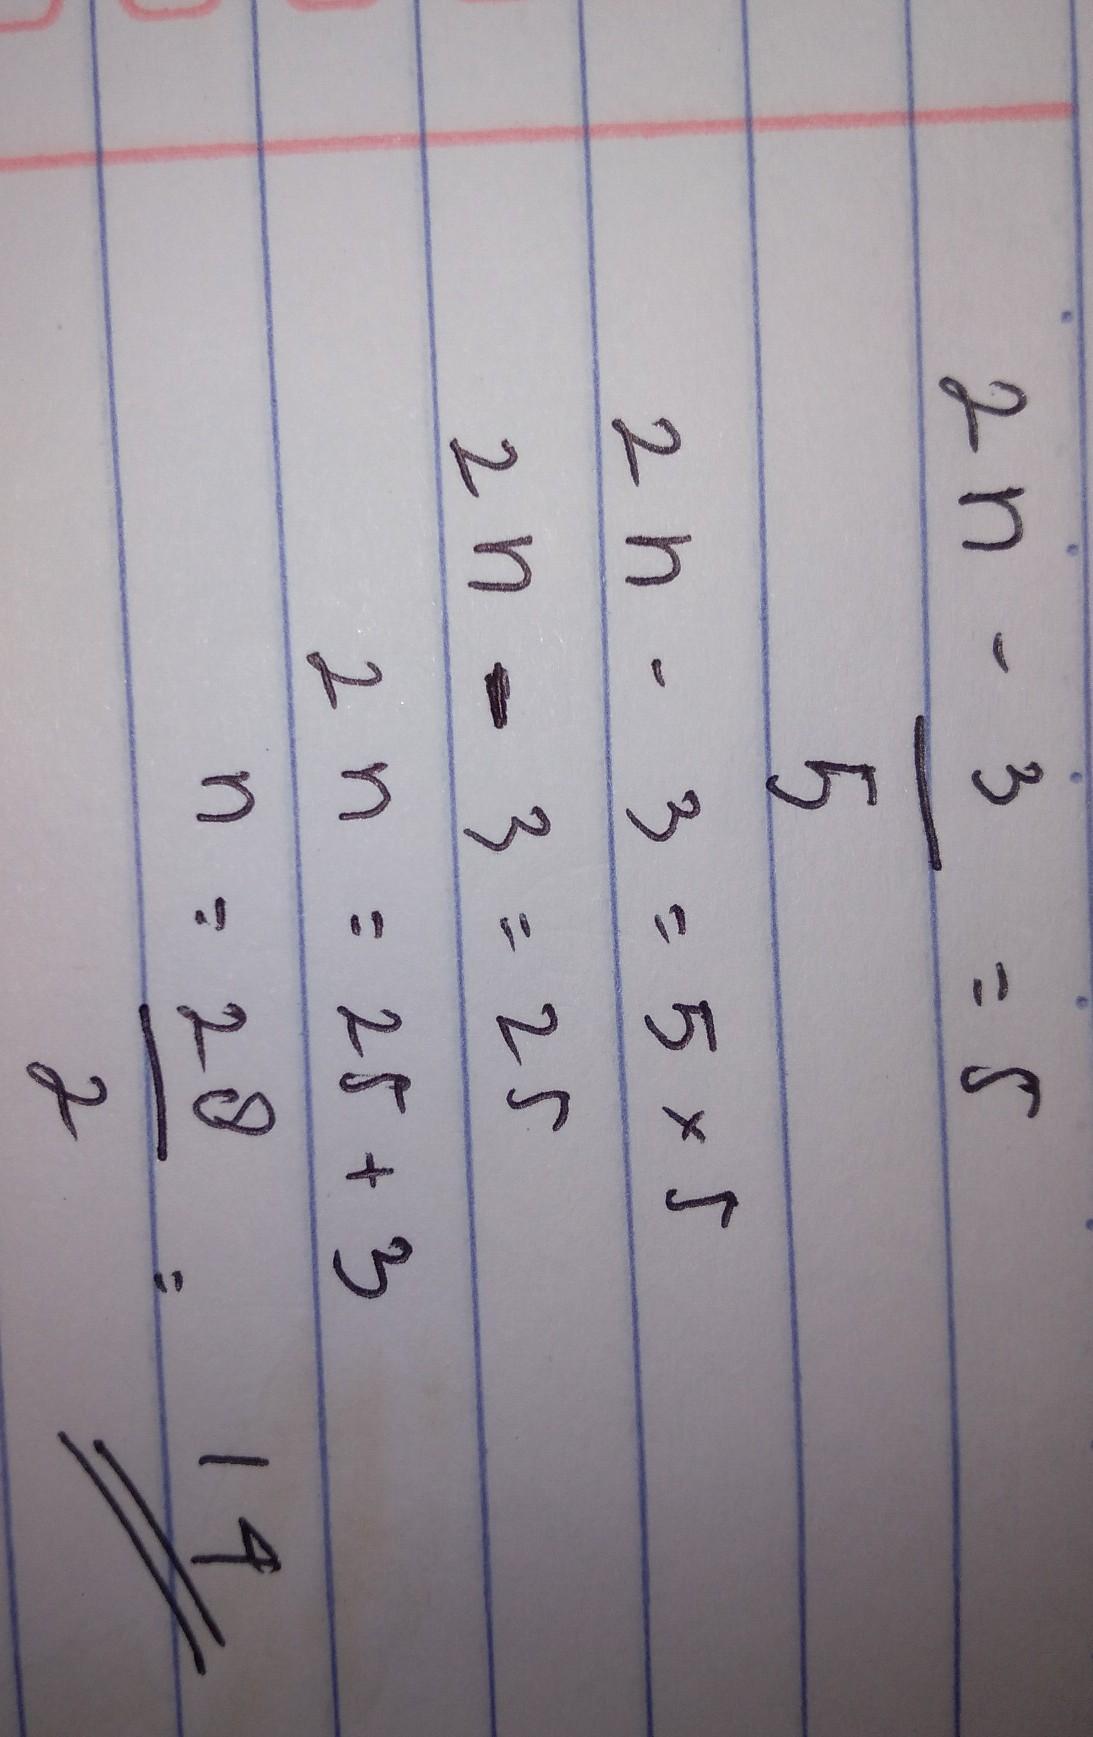 2n - 3 = 5
5
2n - 3 = 5 × 5
2n - 3 = 25
2n = 25 + 3
n = 28 = 14
2